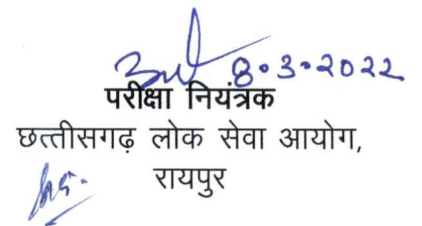 8.3.2022
परीक्षा नियंत्रक
छत्तीसगढ़ लोक सेवा आयोग,
रायपुर